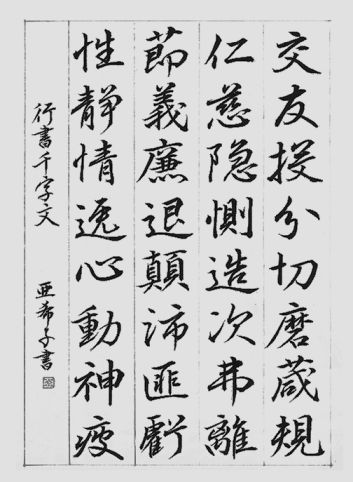 交友投分切磨葴規
仁慈隐惻造次弗離
節義廉退顛沛匪虧
性静情逸心動神疲
行書千字文 亚希子書